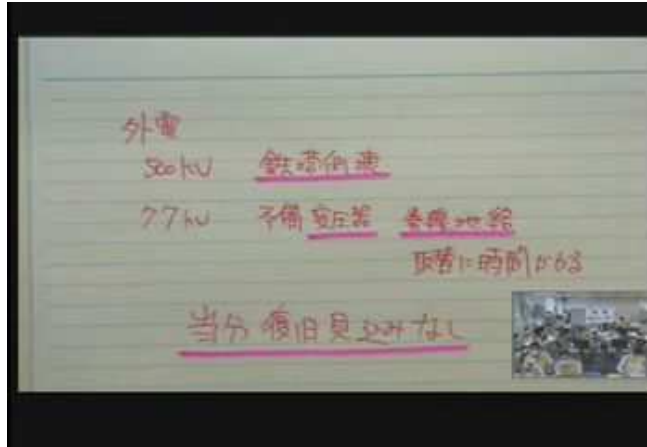 外電
500kV 鉄塔倒壊
77kV 予備変圧器 巻線地絡
取替に時間かかる
当分復旧見込みなし